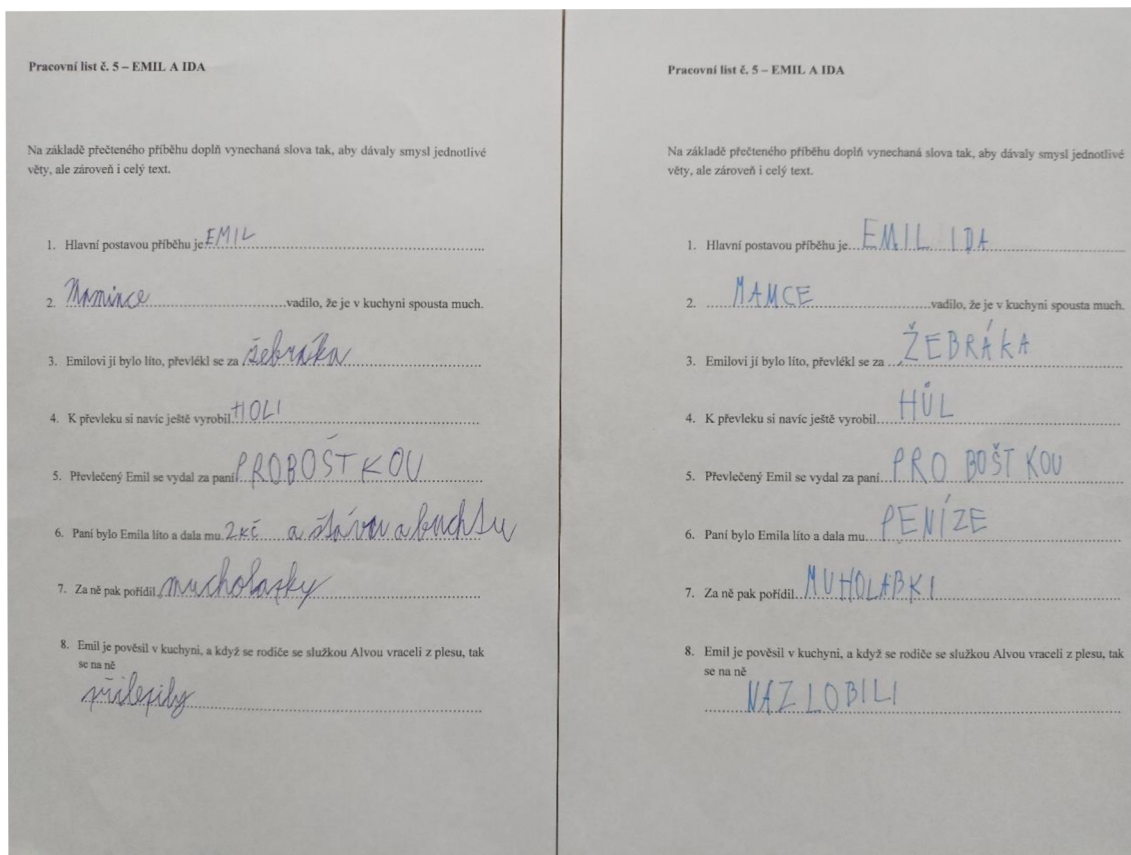 Pracovní list č. 5 – EMIL A IDA
Na základě přečteného příběhu doplň vynechaná slova tak, aby dávaly smysl jednotlivé
věty, ale zároveň i celý text.
1. Hlavní postavou příběhu je EMIL
2. Mamince vadilo, že je v kuchyni spousta much.
3. Emilovi jí bylo líto, převlékl se za žebráka
4. K převleku si navíc ještě vyrobil HOLI
5. Převlečený Emil se vydal za paní PROBOŠTKOU
6. Paní bylo Emila líto a dala mu 2KČ a štávu a buchtu
7. Za ně pak pořídil mucholapky
8. Emil je pověsil v kuchyni, a když se rodiče se služkou Alvou vraceli z plesu, tak
se na ně
přilepily
Pracovní list č. 5 – EMIL A IDA
Na základě přečteného příběhu doplň vynechaná slova tak, aby dávaly smysl jednotlivé
věty, ale zároveň i celý text.
1. Hlavní postavou příběhu je EMIL IDA
2. MAMCE vadilo, že je v kuchyni spousta much.
3. Emilovi jí bylo líto, převlékl se za ŽEBRÁKA
4. K převleku si navíc ještě vyrobil HŮL
5. Převlečený Emil se vydal za paní PRO BOŠT KOU
6. Paní bylo Emila líto a dala mu PENÍZE
7. Za ně pak pořídil MUHOLABKI
8. Emil je pověsil v kuchyni, a když se rodiče se služkou Alvou vraceli z plesu, tak
se na ně
NAZLOBILI